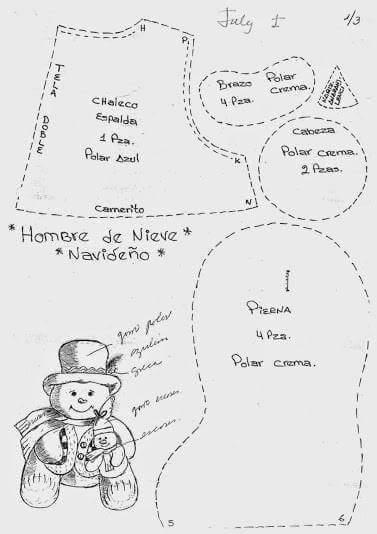 July I
1/3
H
P
TELA DOBLE
CHaleco
Espalda
1 Pza.
Polar Azul
K
N
Carnerito
Brazo
4 Pza.
Polar
Crema.
Cabeza
Polar Crema.
2 Pzas.
*Hombre de Nieve*
*Navideño*
PIERNA
4 Pza.
Polar Crema.
gorro polar
gorro
5
6